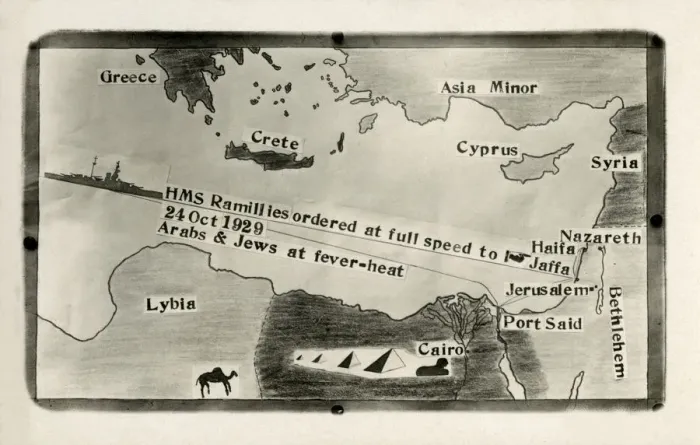 Greece
Asia Minor
Crete
Cyprus
Syria
HMS Ramillies ordered at full speed to
24 Oct 1929
Arabs & Jews at fever-heat
Haifa
Nazareth
Jaffa
Jerusalem
Bethlehem
Lybia
Port Said
Cairo